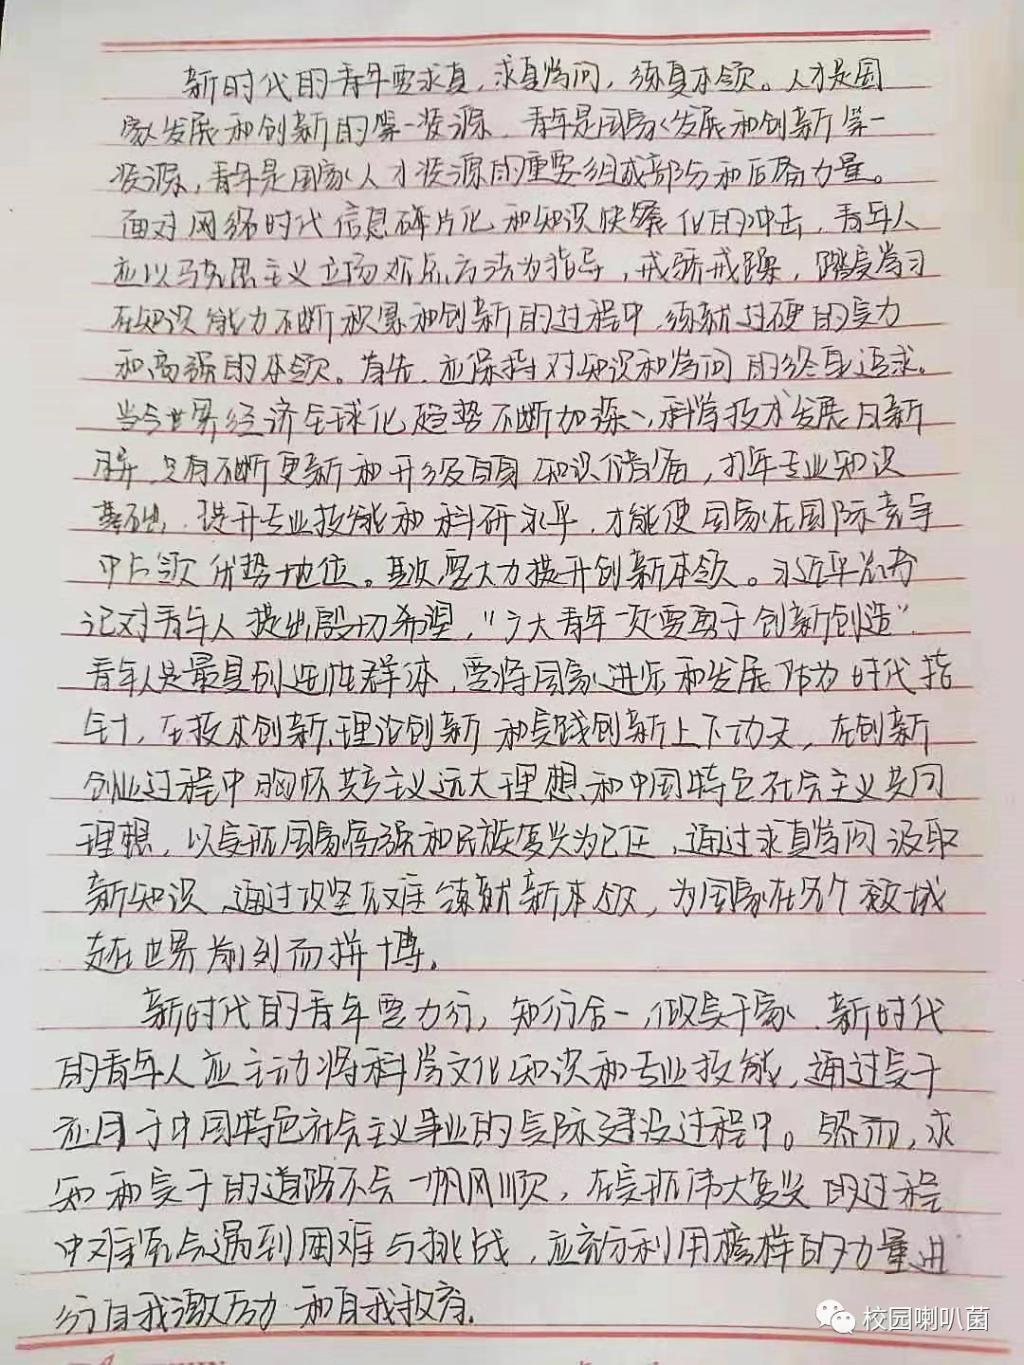 新时代的青年要求真，求真学问，练真本领。人才是国
家发展和创新的第一资源，青年是国家发展和创新第一
资源，青年是国家人才资源的重要组成部分和后备力量。
面对网络时代信息碎片化和知识快餐化的冲击，青年人
应以马克思主义立场观点方法为指导，戒骄戒躁，踏实学习
在知识能力不断积累和创新的过程中，练就过硬的实力
和高强的本领。首先，应保持对知识和学问的终身追求。
当今世界经济全球化趋势不断加深、科学技术发展日新
月异，只有不断更新和升级自身知识储备，打牢专业知识
基础，提升专业技能和科研水平，才能使国家在国际竞争
中占领优势地位。其次，要大力提升创新本领。习近平总书
记对青年人提出殷切希望，“广大青年一定要勇于创新创造”，
青年人是最具创造性群体，要将国家进步和发展作为时代指
针，在技术创新、理论创新和实践创新上下功夫，在创新
创业过程中胸怀共产主义远大理想和中国特色社会主义共同
理想，以实现国家富强和民族复兴为己任，通过求真学问汲取
新知识，通过攻坚克难练就新本领，为国家在各个领域
走在世界前列而拼搏。
新时代的青年要力行，知行合一，做实干家。新时代
的青年人应主动将科学文化知识和专业技能，通过实干
应用于中国特色社会主义事业的实际建设过程中。然而，求
知和实干的道路不会一帆风顺，在实现伟大复兴的过程
中难免会遇到困难与挑战，应充分利用榜样的力量进
行自我激励和自我教育。
校园喇叭菌